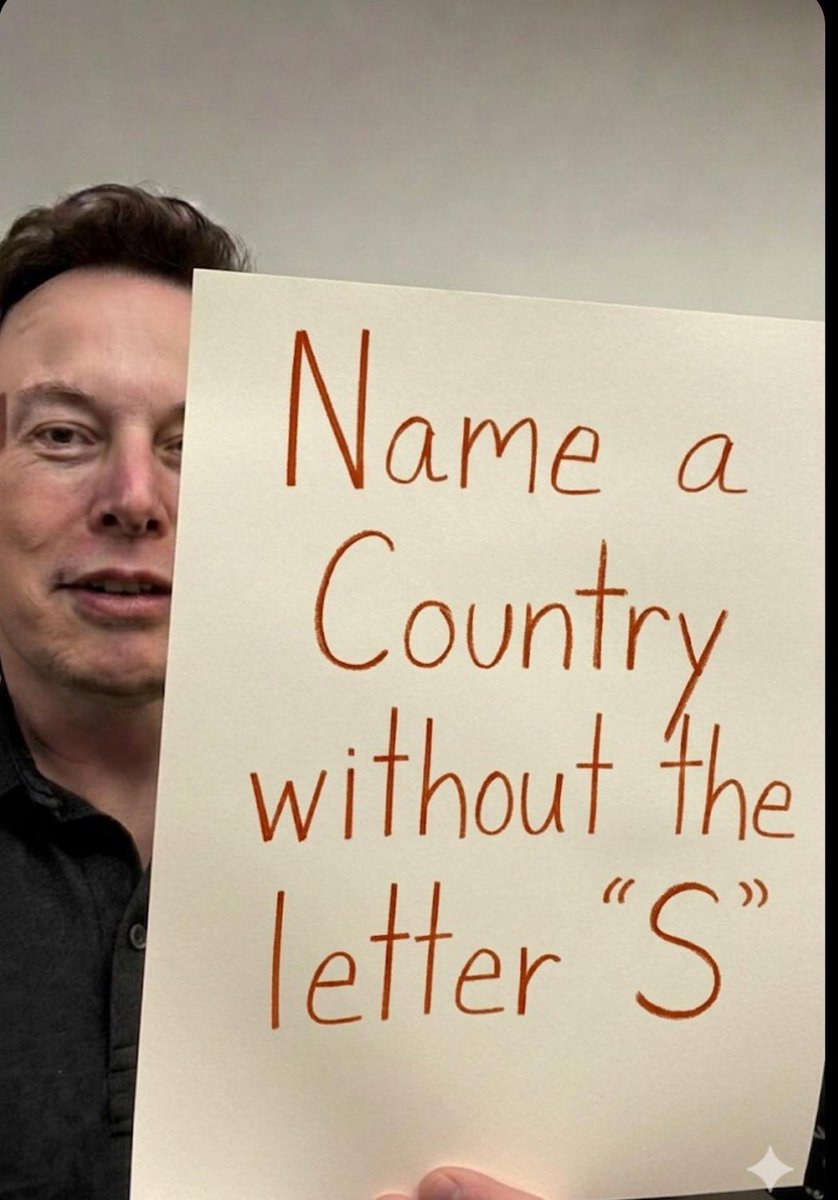 Name a
Country
without the
letter “S”